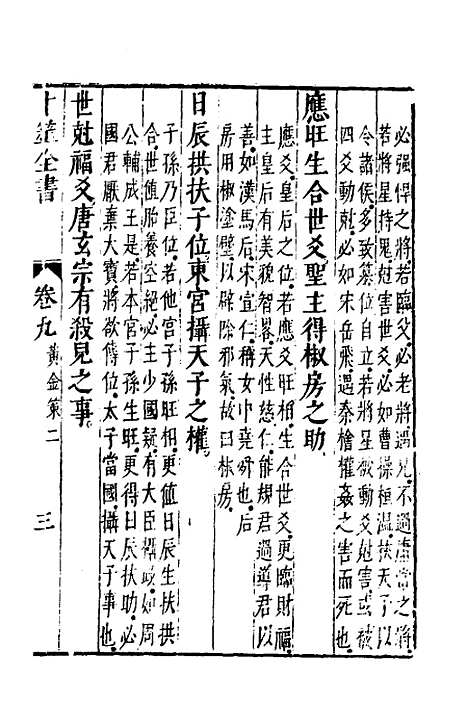 必强悍之將若臨父必老將遇兄不過尋常之將
若將星持鬼尅害世爻必如曹操桓温扶天子以
令諸侯多致篡位自立若將星被動爻尅害或被
四爻動尅必如宋岳飛遇秦檜權姦之害而死也
應旺生合世爻聖主得椒房之助
應爻皇后之位若應爻旺相生合世爻更臨財福
主皇后有美貌智畧天性慈仁能規君過導君以
善如漢馬后宋宣仁稱女中堯舜也后
房用椒塗壁以辟除邪氣故曰椒房
日辰拱扶子位東宮攝天子之權
子孫乃臣位若他宮子孫旺相更值日辰生扶拱
合世值胎養空絕必主少國疑有大臣攝政如周
公輔成王是若本宮子孫生旺更得日辰扶助必
國君厭棄大寶將欲傳位太子當國攝天子事也
世尅福爻唐玄宗有殺兒之事
卜筮全書
卷九
黃金策二
三